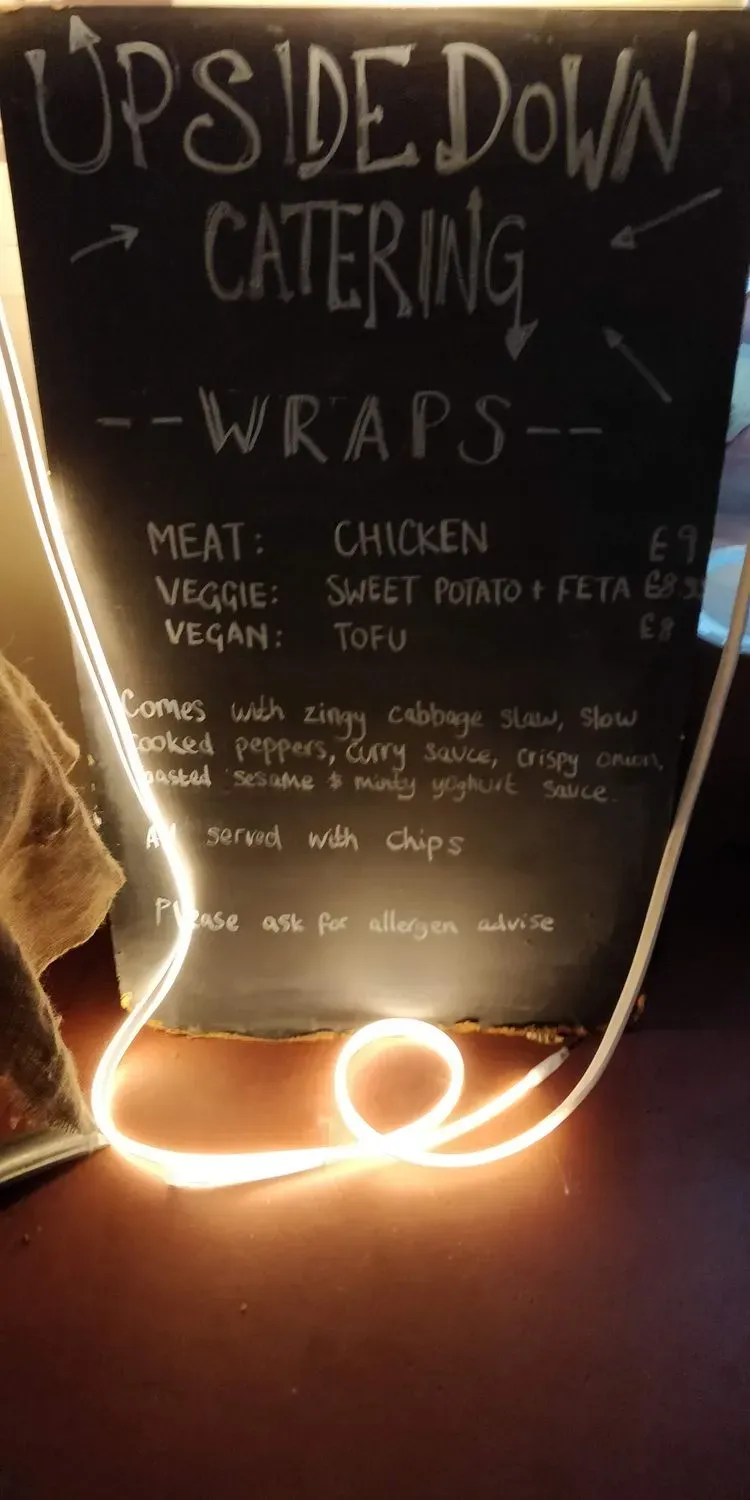 UPSIDE DOWN
CATERING
--WRAPS--
MEAT: CHICKEN £9
VEGGIE: SWEET POTATO + FETA £8.50
VEGAN: TOFU £8
Comes with zingy cabbage slaw, slow
cooked peppers, curry sauce, crispy onion,
toasted sesame & minty yoghurt sauce.
All served with chips
Please ask for allergen advise